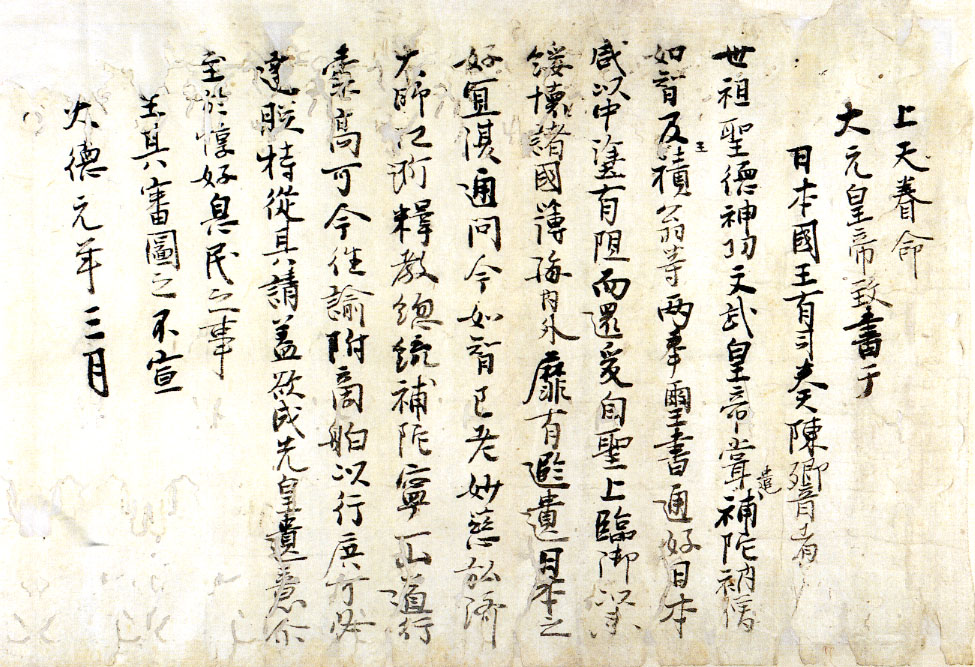 上天眷命
大元皇帝致書于
日本國王有司奏陳嚮者
世祖聖德神功文武皇帝甞遣補陀衲僧
如智及王積翁等兩奉璽書通好日本
咸以中塗有阻而還爰自聖上臨御以来
綏懷諸國薄海內外靡有遐遺日本之
好宜復通問今如智已老妙慈弘濟
大師江浙釋教總統補陀寧一山道行
素高可令往諭附商舶以行庶可必
達朕特從其請蓋欲成先皇遺意尒
至於惇好息民之事
王其審圖之不宣
大德元年三月